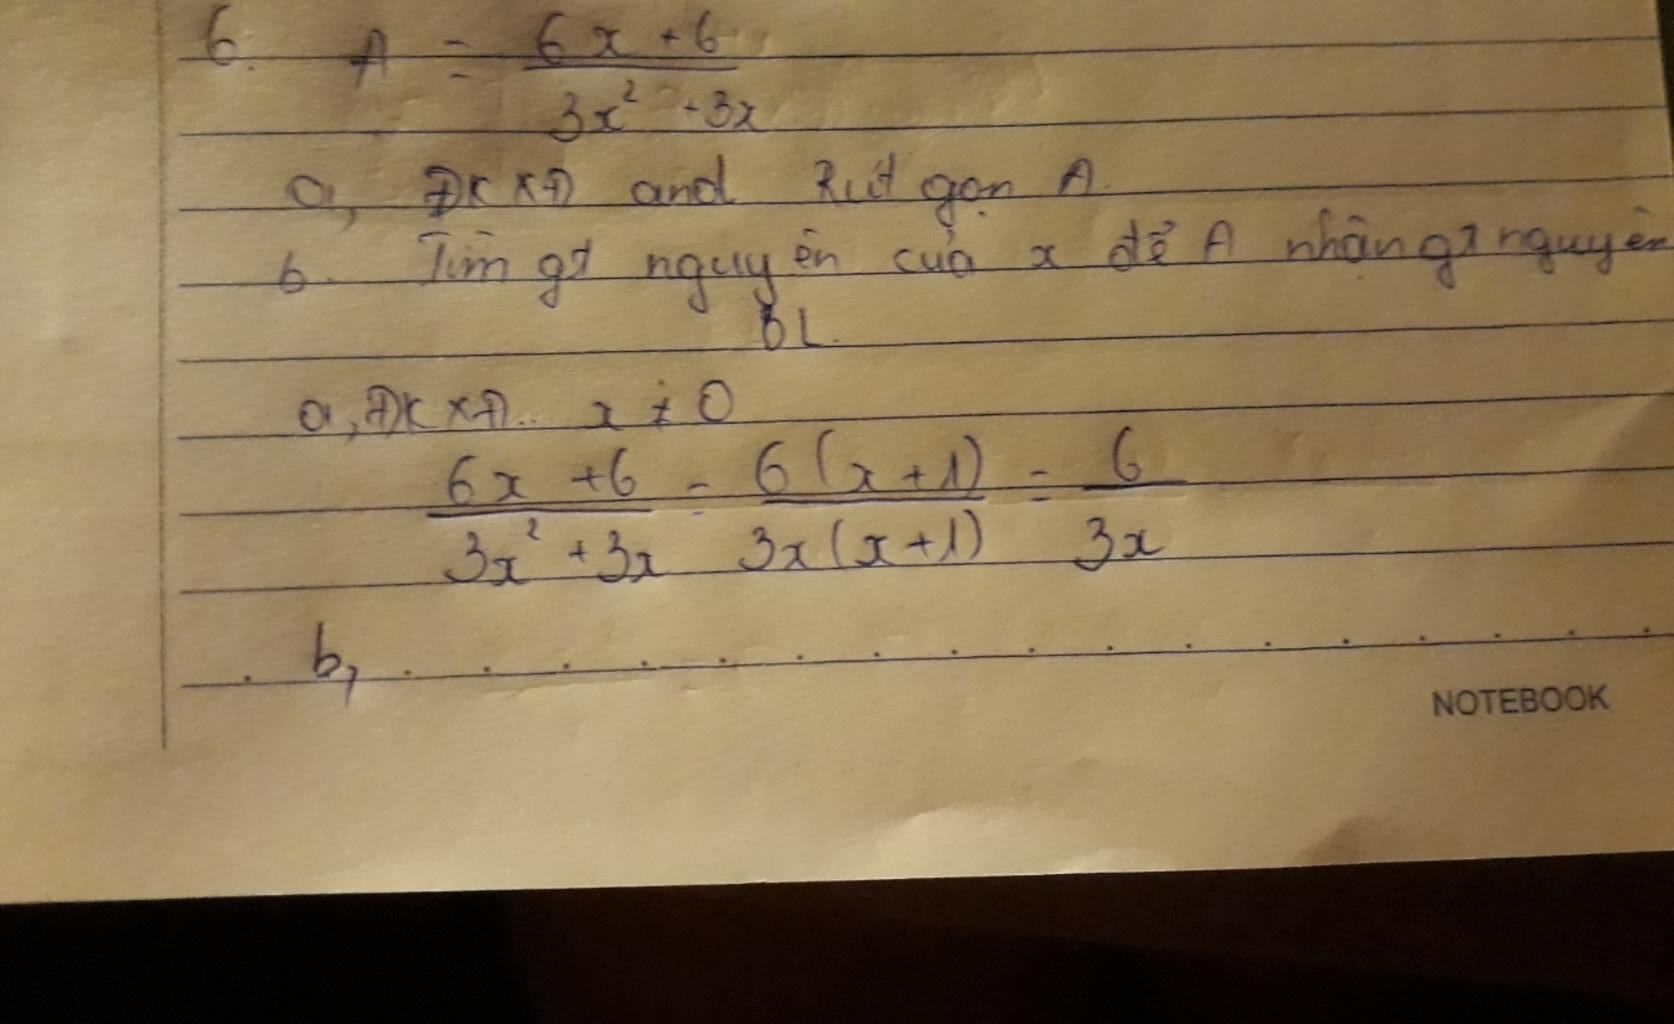 6. A = (6x + 6)/(3x² + 3x)
a, ĐKXĐ and Rút gọn A.
b. Tìm gt nguyên của x để A nhận gt nguyên
BL.
a, ĐKXĐ.. x ≠ 0
(6x + 6)/(3x² + 3x) = 6(x+1)/3x(x+1) = 6/3x
b, . . . . . . . . . . . . . . . . .
NOTEBOOK